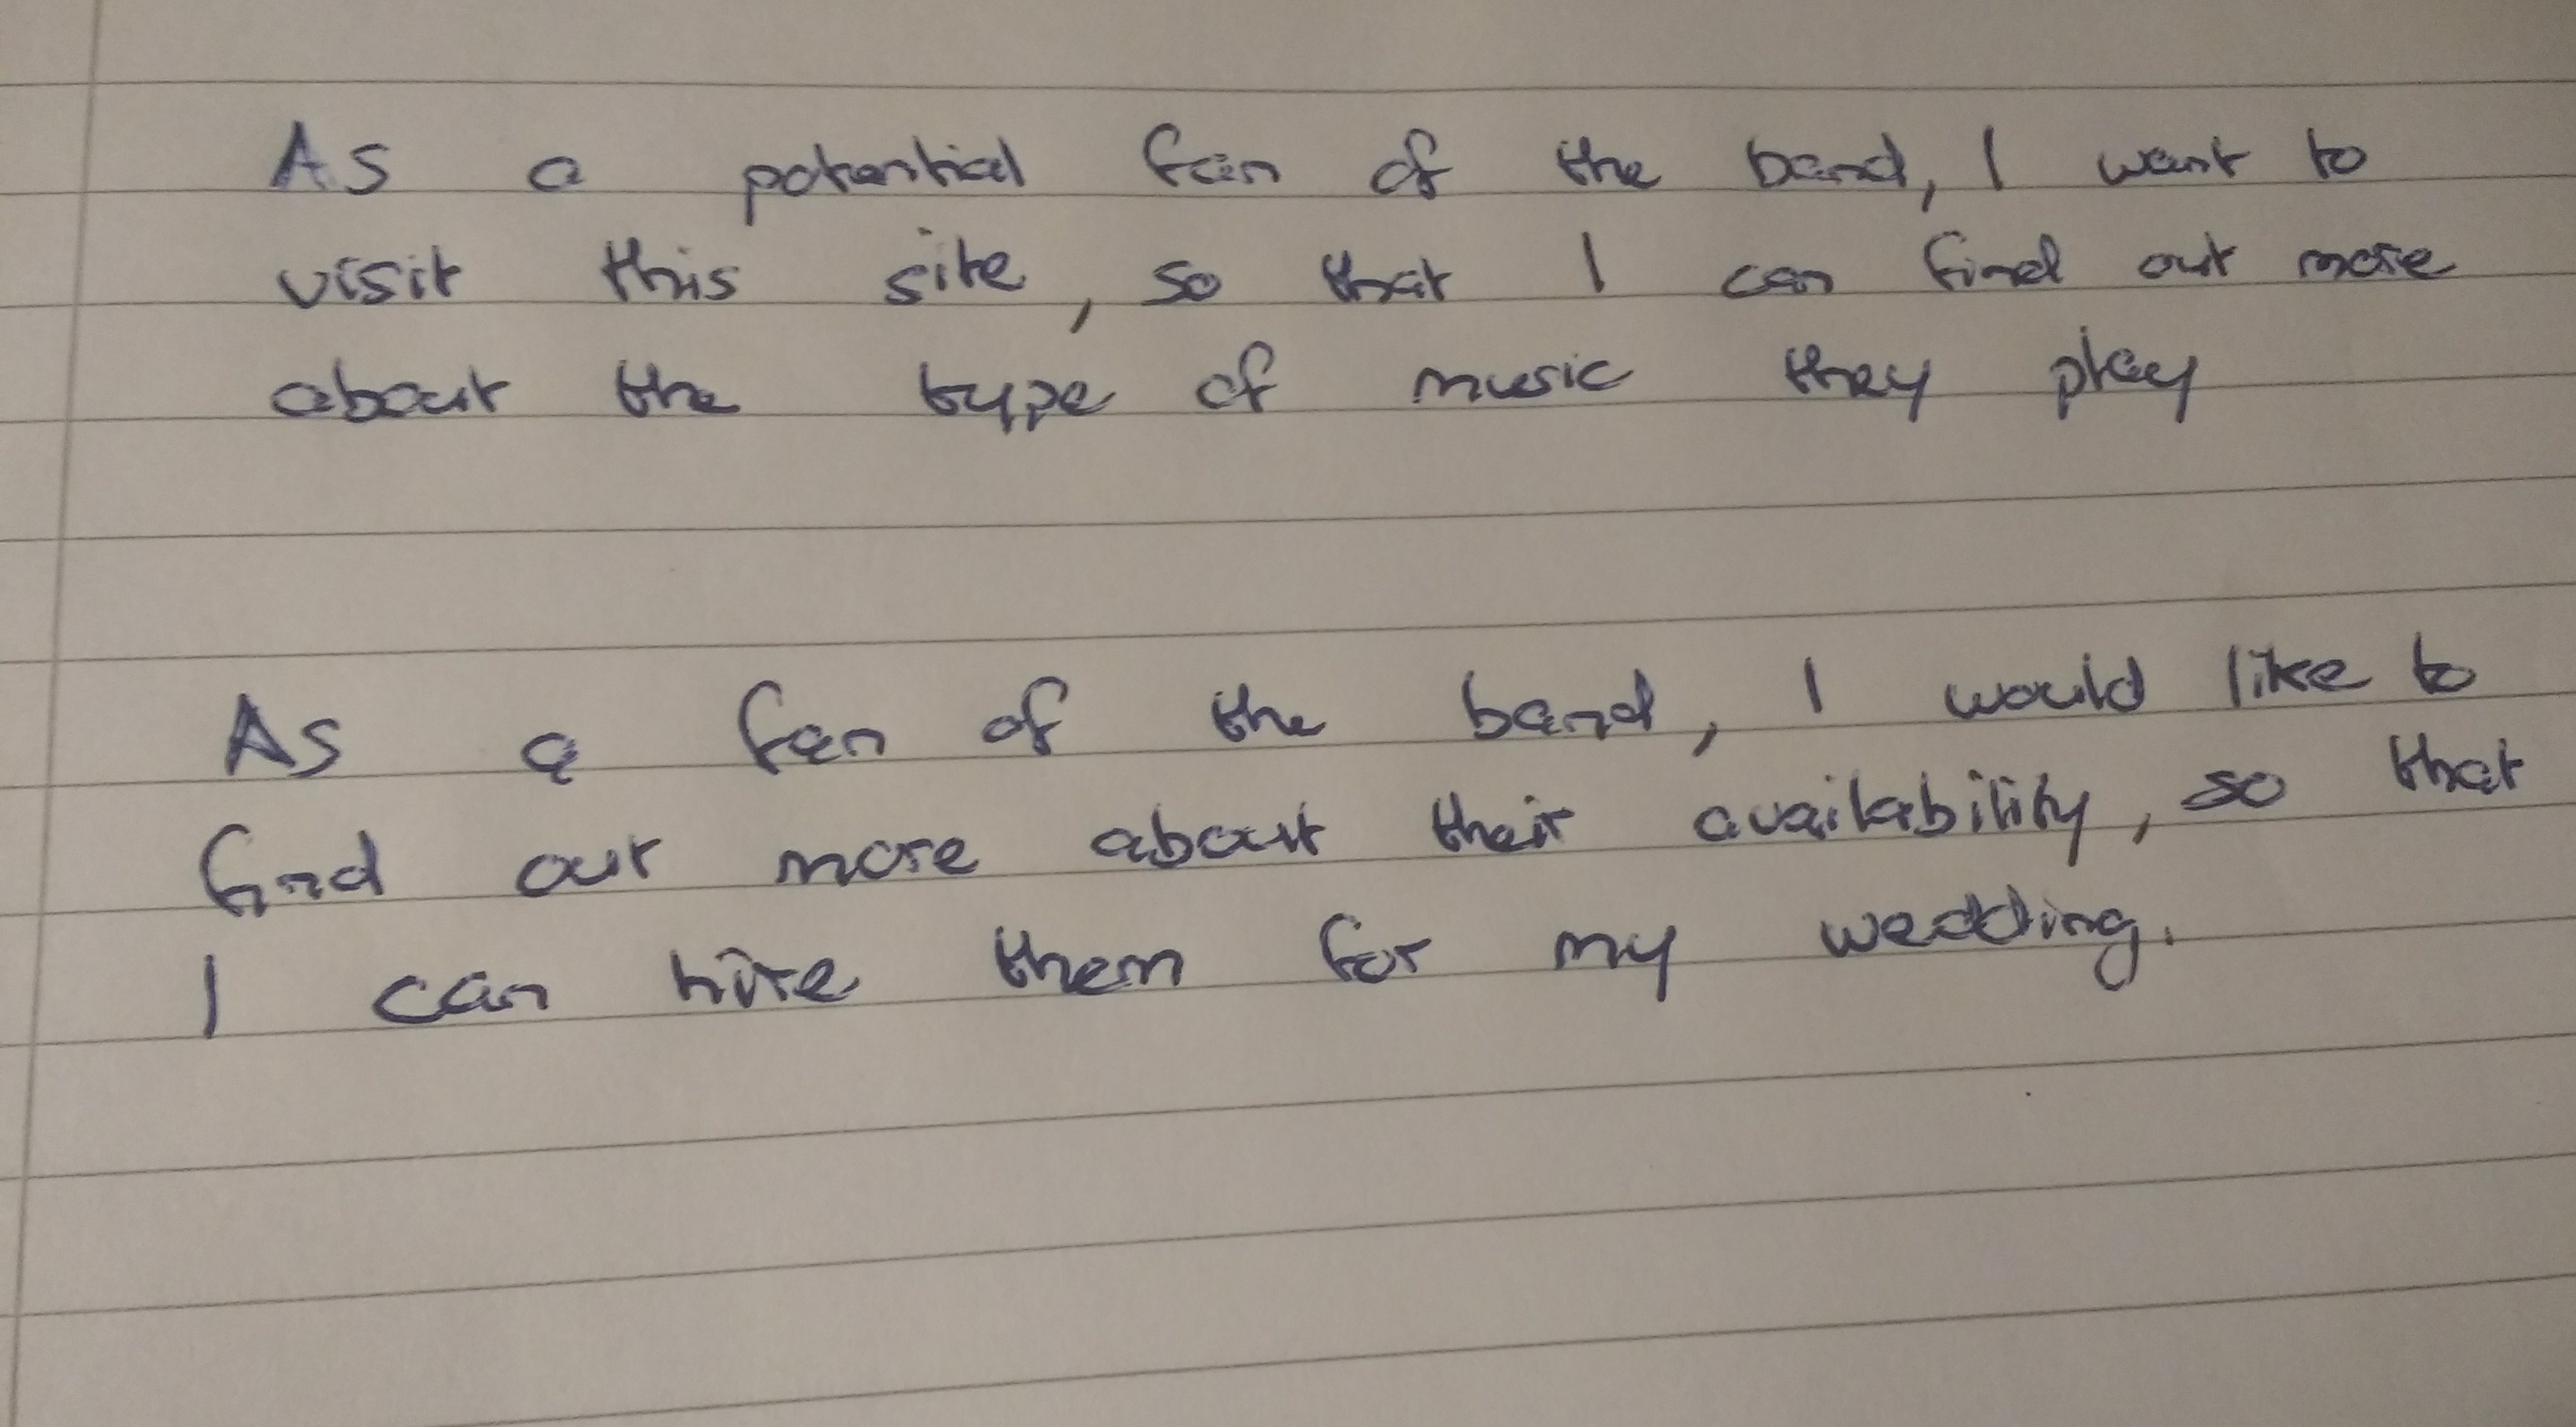 As a potential fan of the band, I want to
visit this site, so that I can find out more
about the type of music they play
As a fan of the band, I would like to
find out more about their availability, so that
I can hire them for my wedding.